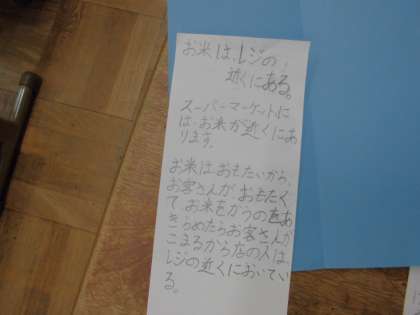 お米は、レジの
近くにある。
スーパーマーケットに
は、お米が近くにあ
ります。
お米はおもたいから、
お客さんがおもたく
てお米をかうのをあ
きらめたらお客さんが
こまるから店の人は、
レジの近くにおいてい
る。